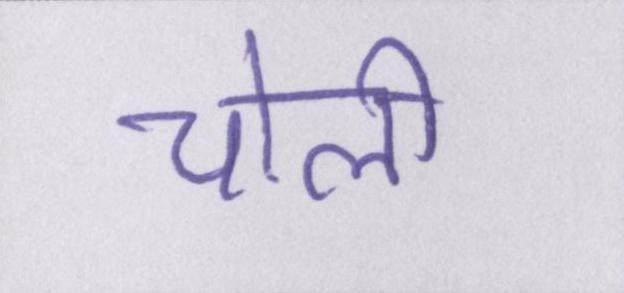 चोली